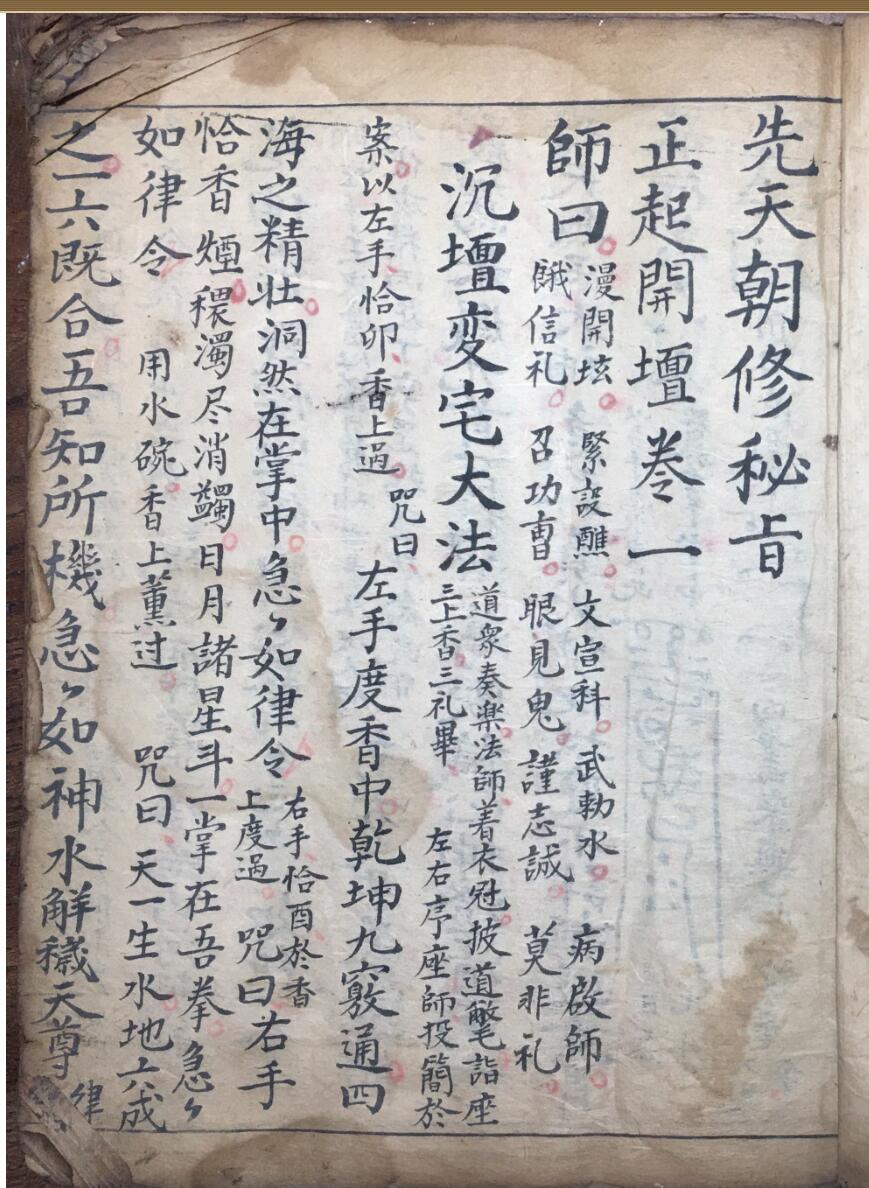 先天朝修秘旨
正起開壇卷一
師曰
漫開坛 緊設醮 文宣科 武勑水 病啟師
餓信礼 召功曹 眼見鬼 謹志誠 莫非礼
沉壇変宅大法
道衆奏楽法師着衣冠披道氅詣座
三上香三礼畢 左右序座師投簡於
案以左手恰卯香上過 咒曰 左手度香中乾坤九竅通四
海之精壮洞然在掌中急々如律令
右手恰酉於香
上度過 咒曰右手
恰香煙穢濁尽消蠲日月諸星斗一掌在吾拳急々
如律令 用水碗香上薰过 咒曰 天一生水地六成
之一六既合吾知所機急々如神水解穢天尊 律